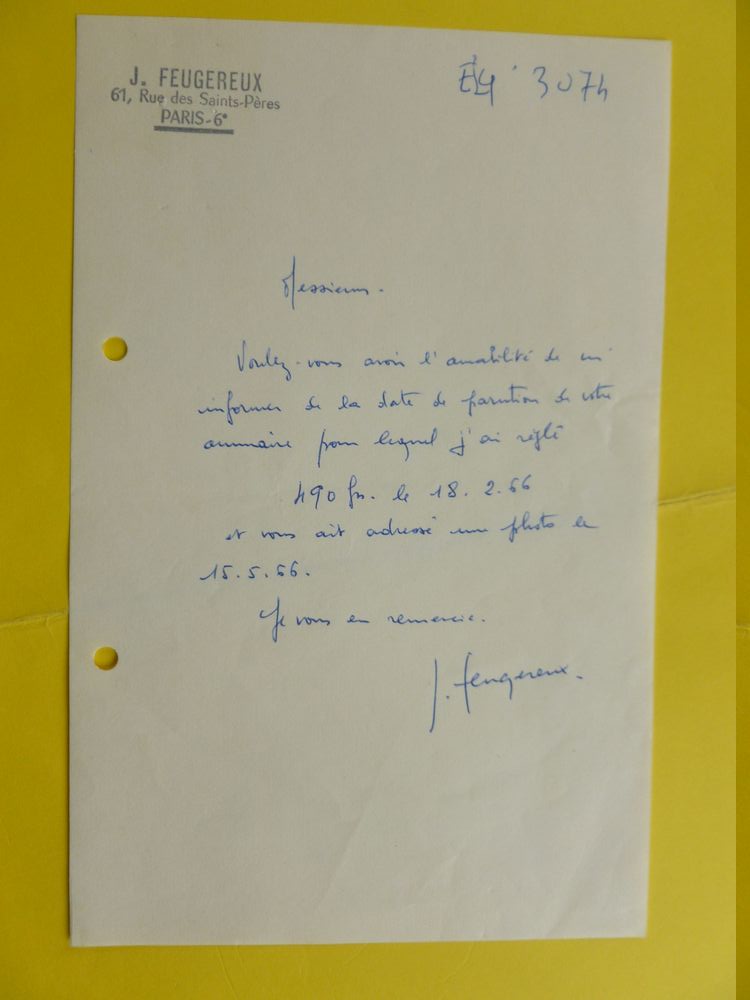 J. FEUGEREUX
61, Rue des Saints-Pères
PARIS-6e
3074
Messieurs.
Voulez-vous avoir l'amabilité de m'
informer de la date de parution de votre
annuaire pour lequel j'ai réglé
490 frs. le 18. 2. 66
et vous ait adressé une photo le
15. 5. 66.
Je vous en remercie.
J. Feugereux.